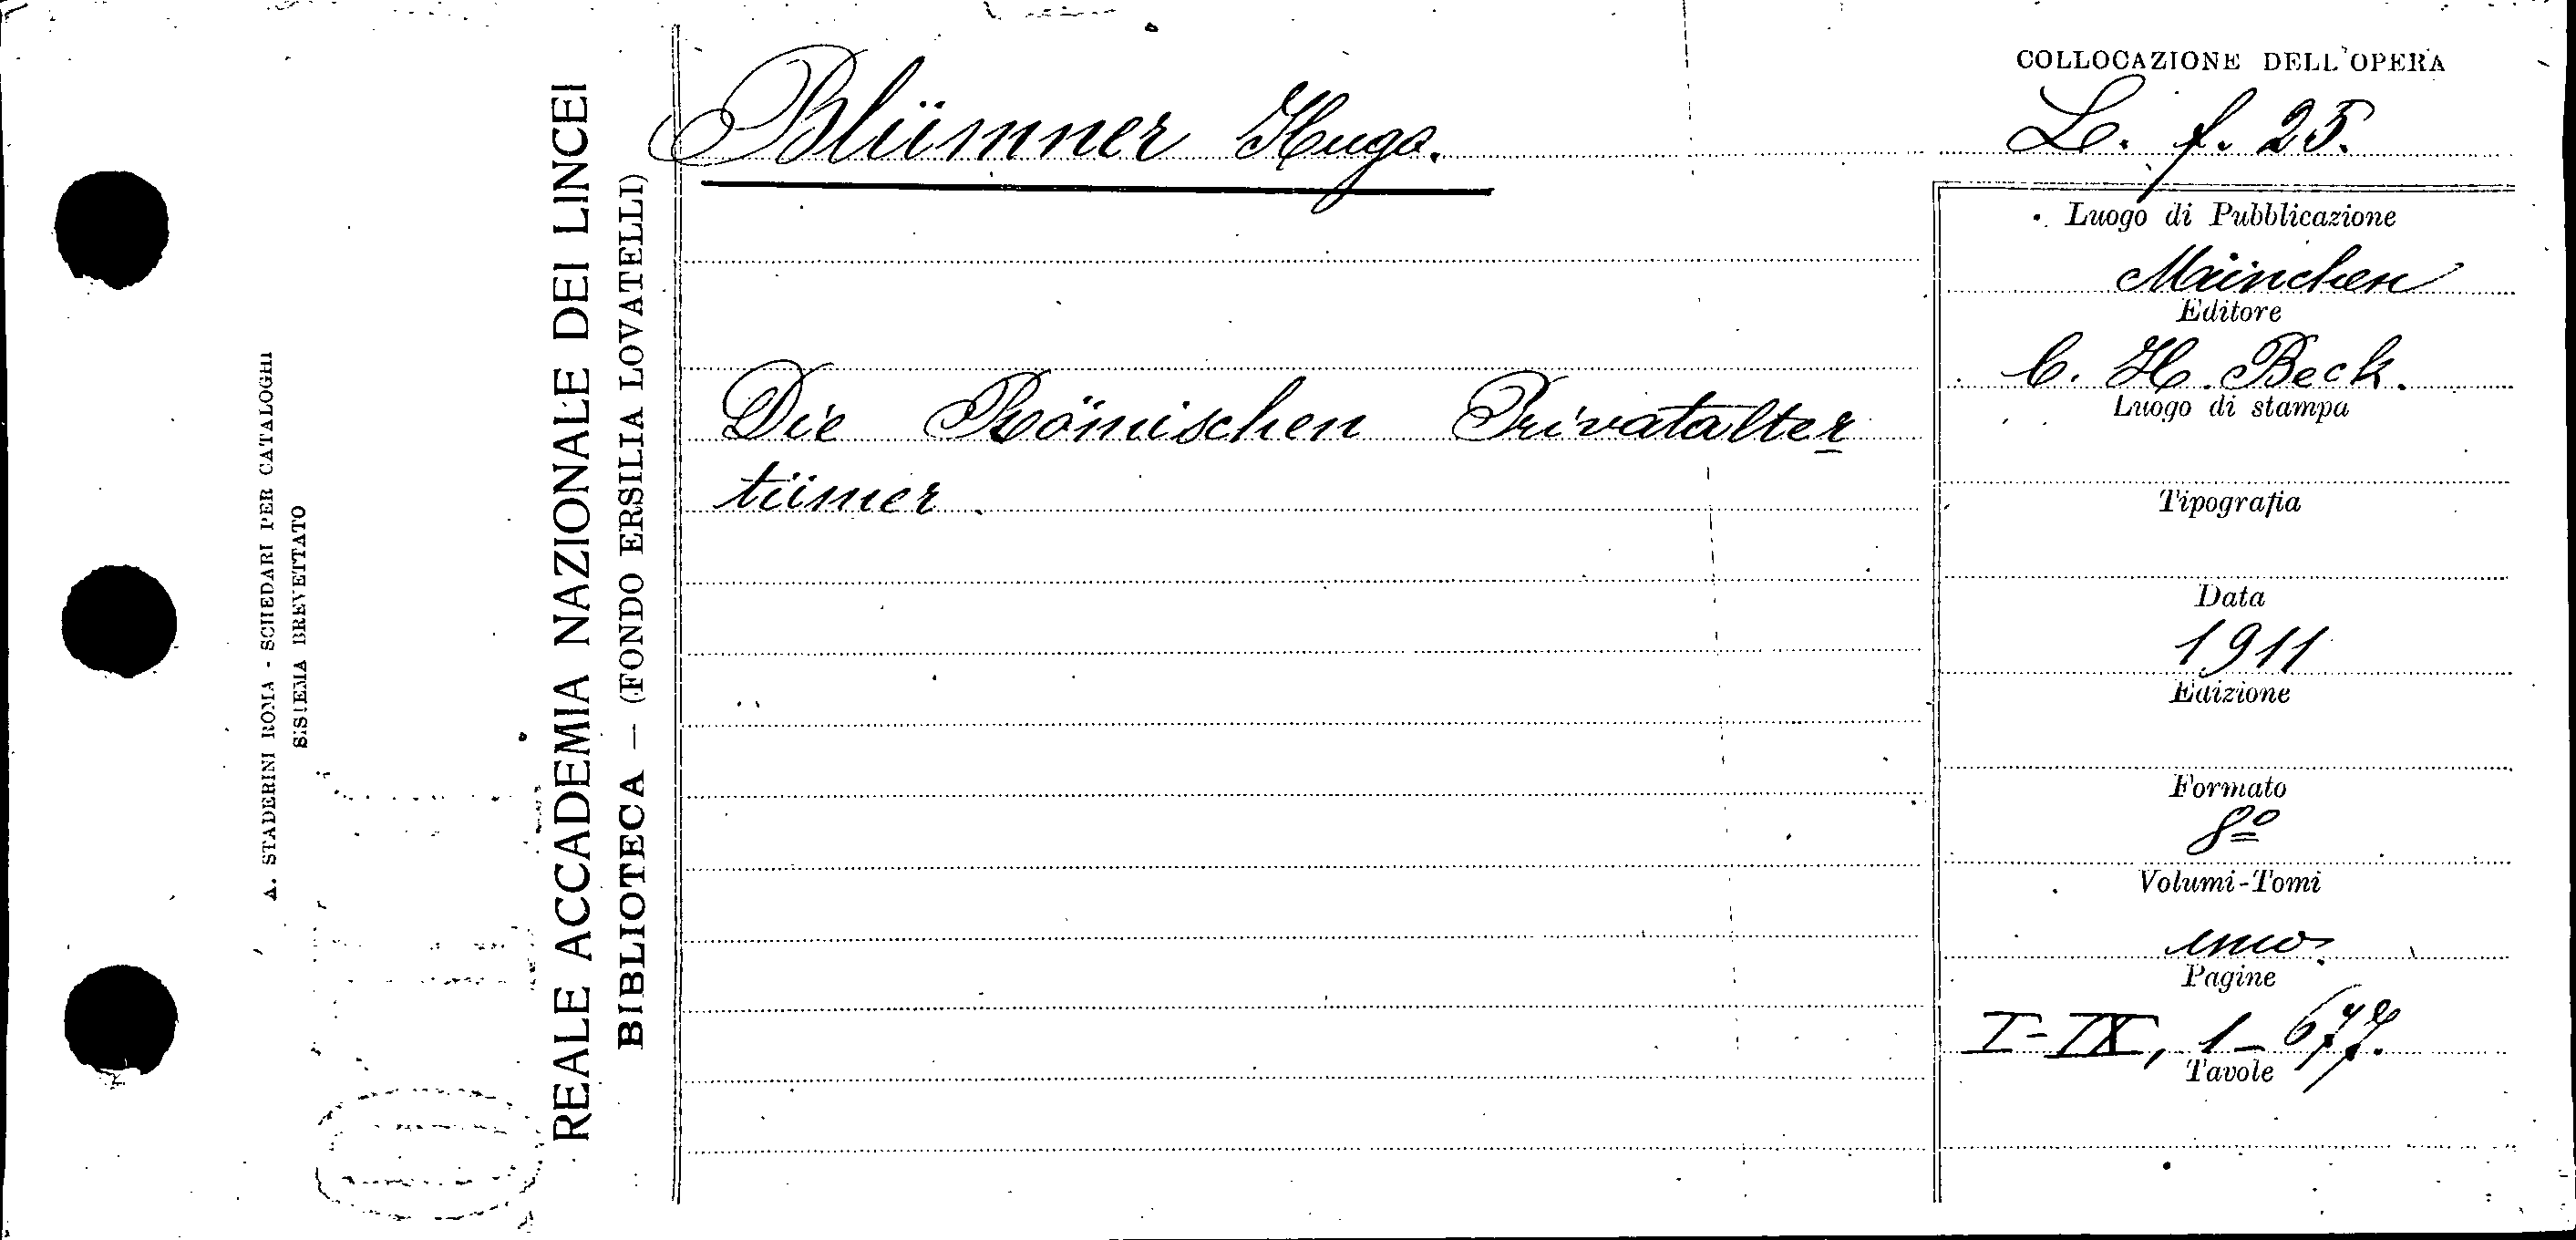 A. STADERINI ROMA - SCHEDARI PER CATALOGHI
SISTEMA BREVETTATO
REALE ACCADEMIA NAZIONALE DEI LINCEI
BIBLIOTECA — (FONDO ERSILIA LOVATELLI)
Blümner Hugo.
Die Römischen Privatalter
tümer.
COLLOCAZIONE DELL'OPERA
L. f. 25.
Luogo di Pubblicazione
München
Editore
C. H. Beck.
Luogo di stampa
Tipografia
Data
1911
Edizione
Formato
8º
Volumi-Tomi
uno.
Pagine
I-IX, 1-677.
Tavole